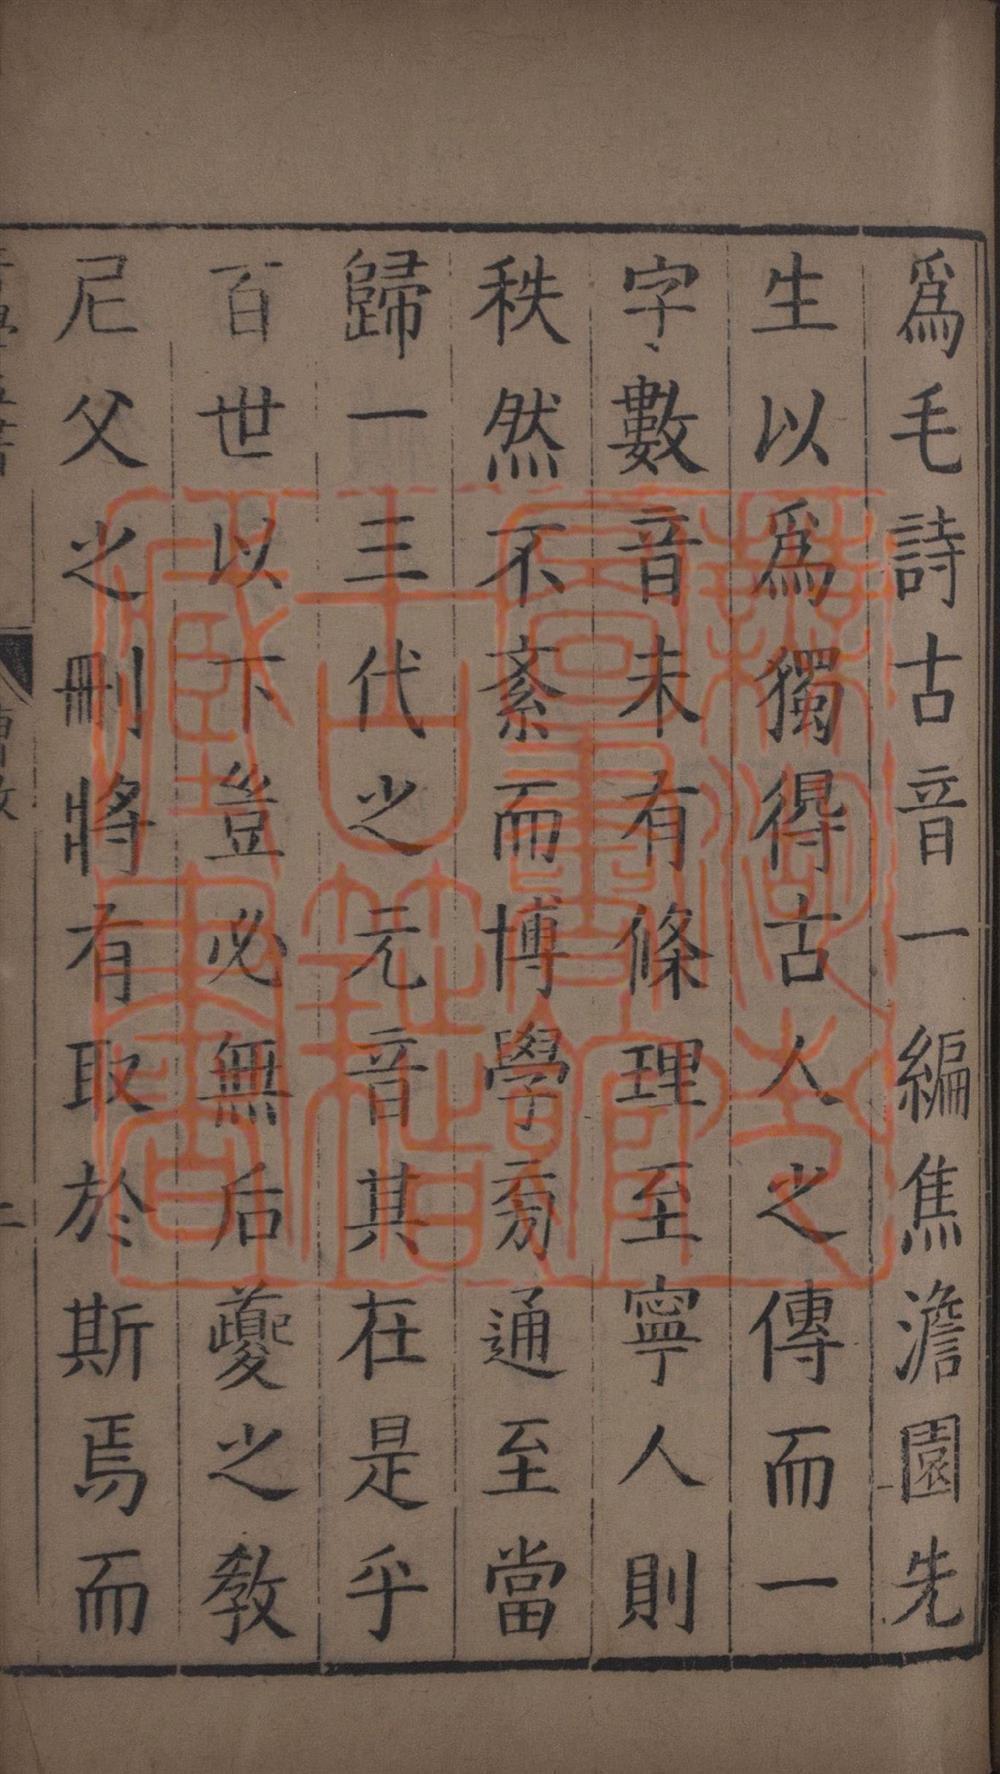 爲毛詩古音一編焦澹園先
生以爲獨得古人之傳而一
字數音未有條理至寧人則
秩然不紊而博學旁通至當
歸一三代之元音其在是乎
百世以下豈必無后夔之教
尼父之刪將有取於斯焉而